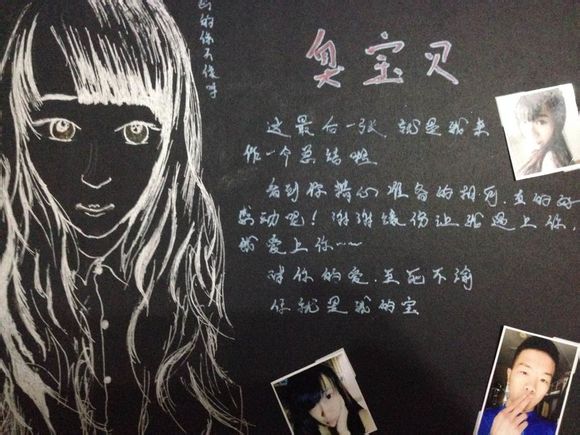 的你不像呀
臭宝贝
这最后一张 就是我来
作一个总结啦
看到你精心准备的相册.真的好
感动吧!谢谢缘份让我遇上你,
我爱上你~~
对你的爱.至死不渝
你就是我的宝